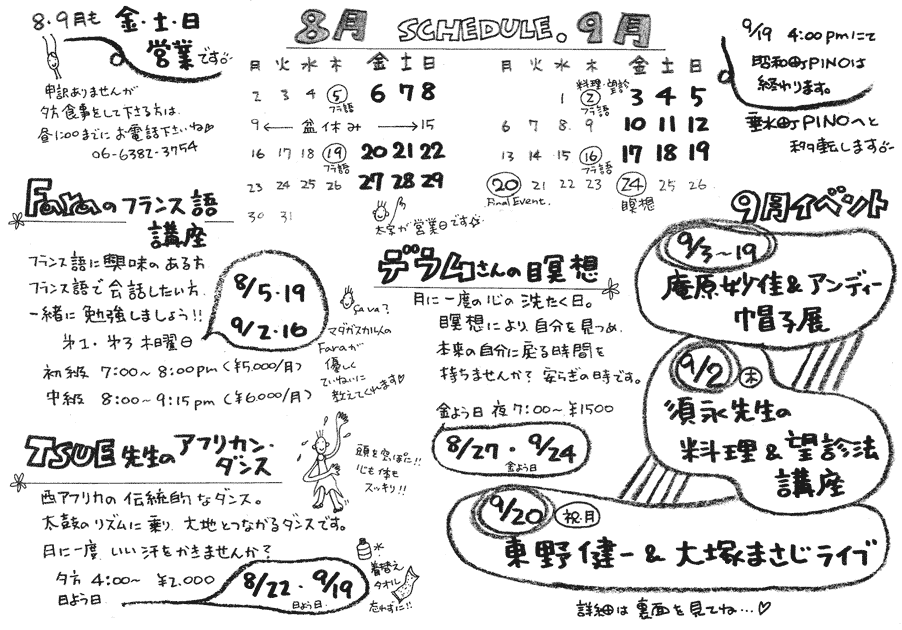 8・9月も 金・土・日
営業です
申訳ありませんが
夕方食事をして下さる方は、
昼12:00までにお電話下さいね♡
06-6382-3754
8月 SCHEDULE. 9月
月 火 水 木 金 土 日
2 3 4 5 6 7 8
フラ語
9 ← 盆休み → 15
16 17 18 19 20 21 22
フラ語
23 24 25 26 27 28 29
30 31
太字が営業日です☆
月 火 水 木 金 土 日
料理・望診
1 2 3 4 5
フラ語
6 7 8 9 10 11 12
13 14 15 16 17 18 19
フラ語
20 21 22 23 24 25 26
Final Event. 瞑想
9/19 4:00pmにて
昭和町PINOは
終わります。
垂水町PINOへと
移転します
Faraのフランス語
講座
フランス語に興味のある方
フランス語で会話したい方、
一緒に勉強しましょう!!
第1・第3木曜日
8/5・19
9/2・16
初級 7:00~8:00pm (¥5,000/月)
中級 8:00~9:15pm (¥6,000/月)
Sava?
マダガスカル人の
Faraが
優しく
ていねいに
教えてくれます♡
TSUE先生のアフリカン・
ダンス
西アフリカの伝統的なダンス。
太鼓のリズムに乗り、大地とつながるダンスです。
月に一度、いい汗をかきませんか?
夕方 4:00~ ¥2,000
日よう日
8/22・9/19
日よう日
頭を空っぽに!!
心も体も
スッキリ!!
着替え
タオル
忘れずに!!
デラムさんの瞑想
月に一度の心の洗たく日。
瞑想により、自分を見つめ、
本来の自分に戻る時間を
持ちませんか? 安らぎの時です。
金よう日 夜7:00~ ¥1500
8/27・9/24
金よう日
9月イベント
9/3~19
庵原妙佳&アンディー
帽子展
9/2 木
須永先生の
料理&望診法
講座
9/20 祝・月
東野健一&大塚まさじライブ
詳細は裏面を見てね…♡